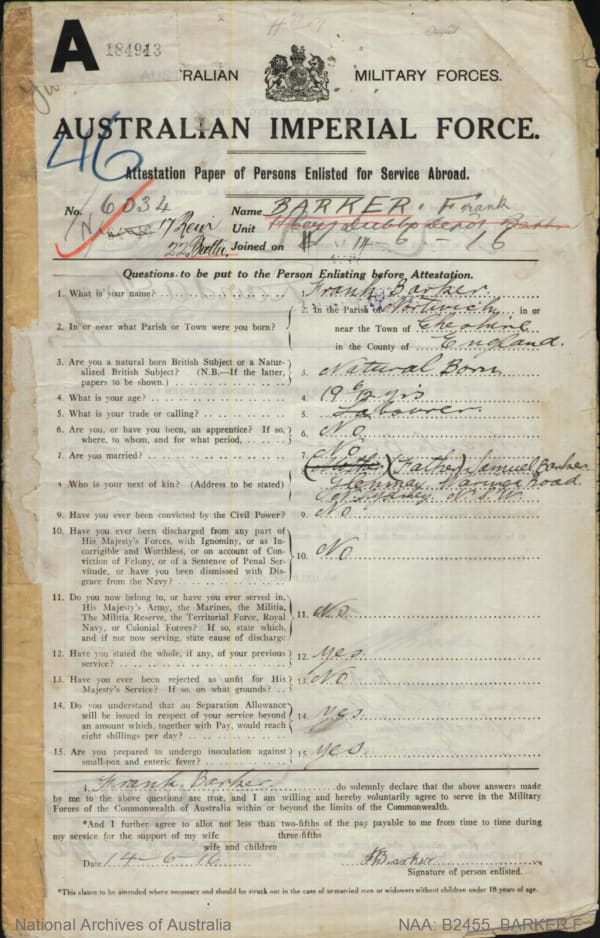 A
184913
TRALIAN MILITARY FORCES.
AUSTRALIAN IMPERIAL FORCE.
46
Attestation Paper of Persons Enlisted for Service Abroad.
No. 6034 Name BARKER. Frank
17 Rein Unit Dubbo Depot Battn
22 Battn. Joined on 14-6-16
Questions to be put to the Person Enlisting before Attestation.
1. What is your name? Frank Barker
2. In or near what Parish or Town were you born? 2. In the Parish of Nortwich in or
near the Town of Cheshire
in the County of England.
3. Are you a natural born British Subject or a Natu-
ralized British Subject? (N.B.—If the latter,
papers to be shown.) 3. Natural Born
4. What is your age? 4. 19 6/12 yrs
5. What is your trade or calling? 5. Labourer.
6. Are you, or have you been, an apprentice? If so,
where, to whom, and for what period, 6. No.
7. Are you married? 7. No.
8 Who is your next of kin? (Address to be stated) (Mother) (Father) Samuel Barker
Road
Nth Sydney N.S.W.
9. Have you ever been convicted by the Civil Power? 9. No
10. Have you ever been discharged from any part of
His Majesty's Forces, with Ignominy, or as In-
corrigible and Worthless, or on account of Con-
viction of Felony, or of a Sentence of Penal Ser-
vitude, or have you been Dismissed with Dis-
grace from the Navy? 10. No
11. Do you now belong to, or have you ever served in,
His Majesty's Army, the Marines, the Militia,
The Militia Reserve, the Territorial Force, Royal
Navy, or Colonial Forces? If so, state which,
and if not now serving, state cause of discharge 11. No.
12. Have you stated the whole, if any, of your previous
service? 12. yes.
13. Have you ever been rejected as unfit for His
Majesty's Service? If so, on what grounds? 13. No
14. Do you understand that no Separation Allowance
will be issued in respect of your service beyond
an amount which, together with Pay, would reach
eight shillings per day? 14. yes
15. Are you prepared to undergo inoculation against
small-pox and enteric fever? 15. yes.
I, Frank Barker do solemnly declare that the above answers made
by me to the above questions are true, and I am willing and hereby voluntarily agree to serve in the Military
Forces of the Commonwealth of Australia within or beyond the limits of the Commonwealth.
*And I further agree to allot not less than two-fifths of the pay payable to me from time to time during
three-fifths
my service for the support of my wife
wife and children
Date 14-6-16 F Barker
Signature of person enlisted.
*This clause to be amended where necessary and should be struck out in the case of unmarried men or widowers without children under 18 years of age.
National Archives of Australia NAA: B2455, BARKER F